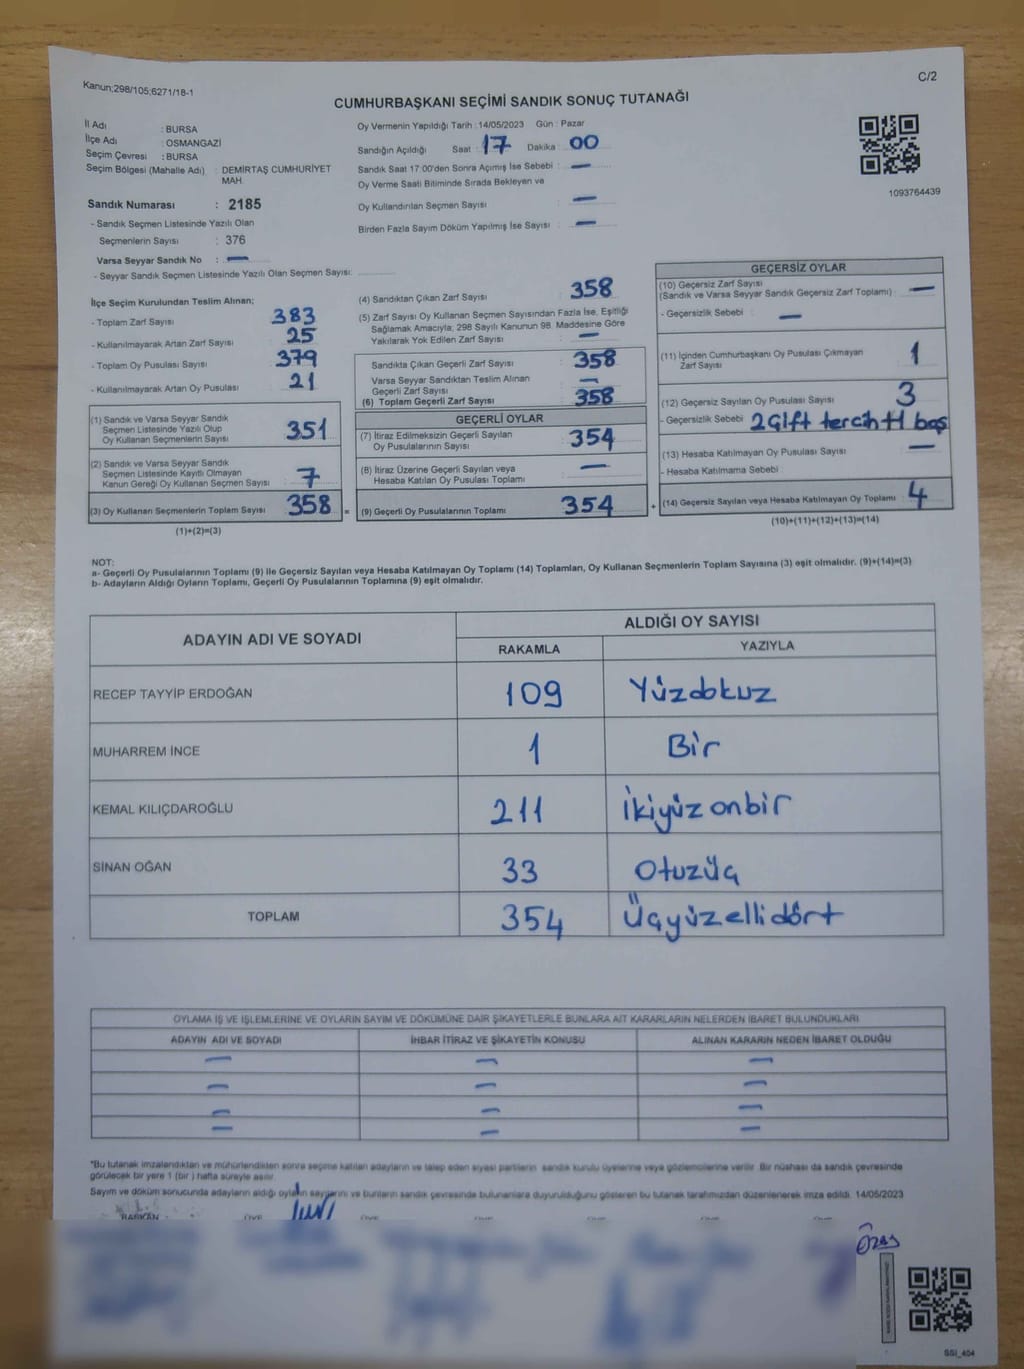 Kanun;298/105;6271/18-1
C/2
CUMHURBAŞKANI SEÇİMİ SANDIK SONUÇ TUTANAĞI
İl Adı : BURSA
İlçe Adı : OSMANGAZİ
Seçim Çevresi : BURSA
Seçim Bölgesi (Mahalle Adı) : DEMİRTAŞ CUMHURİYET
MAH.
Sandık Numarası : 2185
- Sandık Seçmen Listesinde Yazılı Olan
Seçmenlerin Sayısı : 376
Varsa Seyyar Sandık No : —
- Seyyar Sandık Seçmen Listesinde Yazılı Olan Seçmen Sayısı:
Oy Vermenin Yapıldığı Tarih : 14/05/2023 Gün : Pazar
Sandığın Açıldığı Saat : 17 Dakika : 00
Sandık Saat 17:00'den Sonra Açımış İse Sebebi : —
Oy Verme Saati Bitiminde Sırada Bekleyen ve
Oy Kullandırılan Seçmen Sayısı : —
Birden Fazla Sayım Döküm Yapılmış İse Sayısı : —
1093764439
İlçe Seçim Kurulundan Teslim Alınan;
- Toplam Zarf Sayısı : 383
- Kullanılmayarak Artan Zarf Sayısı : 25
- Toplam Oy Pusulası Sayısı : 379
- Kullanılmayarak Artan Oy Pusulası : 21
(1) Sandık ve Varsa Seyyar Sandık
Seçmen Listesinde Yazılı Olup
Oy Kullanan Seçmenlerin Sayısı : 351
(2) Sandık ve Varsa Seyyar Sandık
Seçmen Listesinde Kayıtlı Olmayan
Kanun Gereği Oy Kullanan Seçmen Sayısı : 7
(3) Oy Kullanan Seçmenlerin Toplam Sayısı : 358 =
(1)+(2)=(3)
(4) Sandıktan Çıkan Zarf Sayısı : 358
(5) Zarf Sayısı Oy Kullanan Seçmen Sayısından Fazla İse, Eşitliği
Sağlamak Amacıyla; 298 Sayılı Kanunun 98. Maddesine Göre
Yakılarak Yok Edilen Zarf Sayısı : —
Sandıkta Çıkan Geçerli Zarf Sayısı : 358
Varsa Seyyar Sandıktan Teslim Alınan
Geçerli Zarf Sayısı : —
(6) Toplam Geçerli Zarf Sayısı : 358
GEÇERLİ OYLAR
(7) İtiraz Edilmeksizin Geçerli Sayılan
Oy Pusulasının Sayısı : 354
(8) İtiraz Üzerine Geçerli Sayılan veya
Hesaba Katılan Oy Pusulası Toplamı : —
(9) Geçerli Oy Pusulalarının Toplamı : 354 +
GEÇERSİZ OYLAR
(10) Geçersiz Zarf Sayısı
(Sandık ve Varsa Seyyar Sandık Geçersiz Zarf Toplamı) : —
- Geçersizlik Sebebi : —
(11) İçinden Cumhurbaşkanı Oy Pusulası Çıkmayan
Zarf Sayısı : 1
(12) Geçersiz Sayılan Oy Pusulası Sayısı : 3
- Geçersizlik Sebebi : 2 Çift tercih 1 boş
(13) Hesaba Katılmayan Oy Pusulası Sayısı : —
- Hesaba Katılmama Sebebi :
(14) Geçersiz Sayılan veya Hesaba Katılmayan Oy Toplamı : 4
(10)+(11)+(12)+(13)=(14)
NOT:
a- Geçerli Oy Pusulalarının Toplamı (9) ile Geçersiz Sayılan veya Hesaba Katılmayan Oy Toplamı (14) Toplamları, Oy Kullanan Seçmenlerin Toplam Sayısına (3) eşit olmalıdır. (9)+(14)=(3)
b- Adayların Aldığı Oyların Toplamı, Geçerli Oy Pusulalarının Toplamına (9) eşit olmalıdır.
ADAYIN ADI VE SOYADI ALDIĞI OY SAYISI
RAKAMLA YAZIYLA
RECEP TAYYİP ERDOĞAN 109 Yüzdokuz
MUHARREM İNCE 1 Bir
KEMAL KILIÇDAROĞLU 211 İkiyüz onbir
SİNAN OĞAN 33 Otuzüç
TOPLAM 354 Üçyüzellidört
OYLAMA İŞ VE İŞLEMLERİNE VE OYLARIN SAYIM VE DÖKÜMÜNE DAİR ŞİKAYETLERLE BUNLARA AİT KARARLARIN NELERDEN İBARET BULUNDUKLARI
ADAYIN ADI VE SOYADI İHBAR İTİRAZ VE ŞİKAYETİN KONUSU ALINAN KARARIN NEDEN İBARET OLDUĞU
— — —
— — —
— — —
— — —
*Bu tutanak imzalandıktan ve mühürlendikten sonra seçime katılan adayların ve talep eden siyasi partilerin sandık kurulu üyelerine veya gözlemcilerine verilir. Bir nüshası da sandık çevresinde
görülecek bir yere 1 (bir ) hafta süreyle asılır.
Sayım ve döküm sonucunda adayların aldığı oyların sayılarını ve bunların sandık çevresinde bulunanlara duyurulduğunu gösteren bu tutanak tarafımızdan düzenlenerek imza edildi. 14/05/2023
BAŞKAN ÜYE ÜYE ÜYE ÜYE ÜYE ÜYE
SSI_404